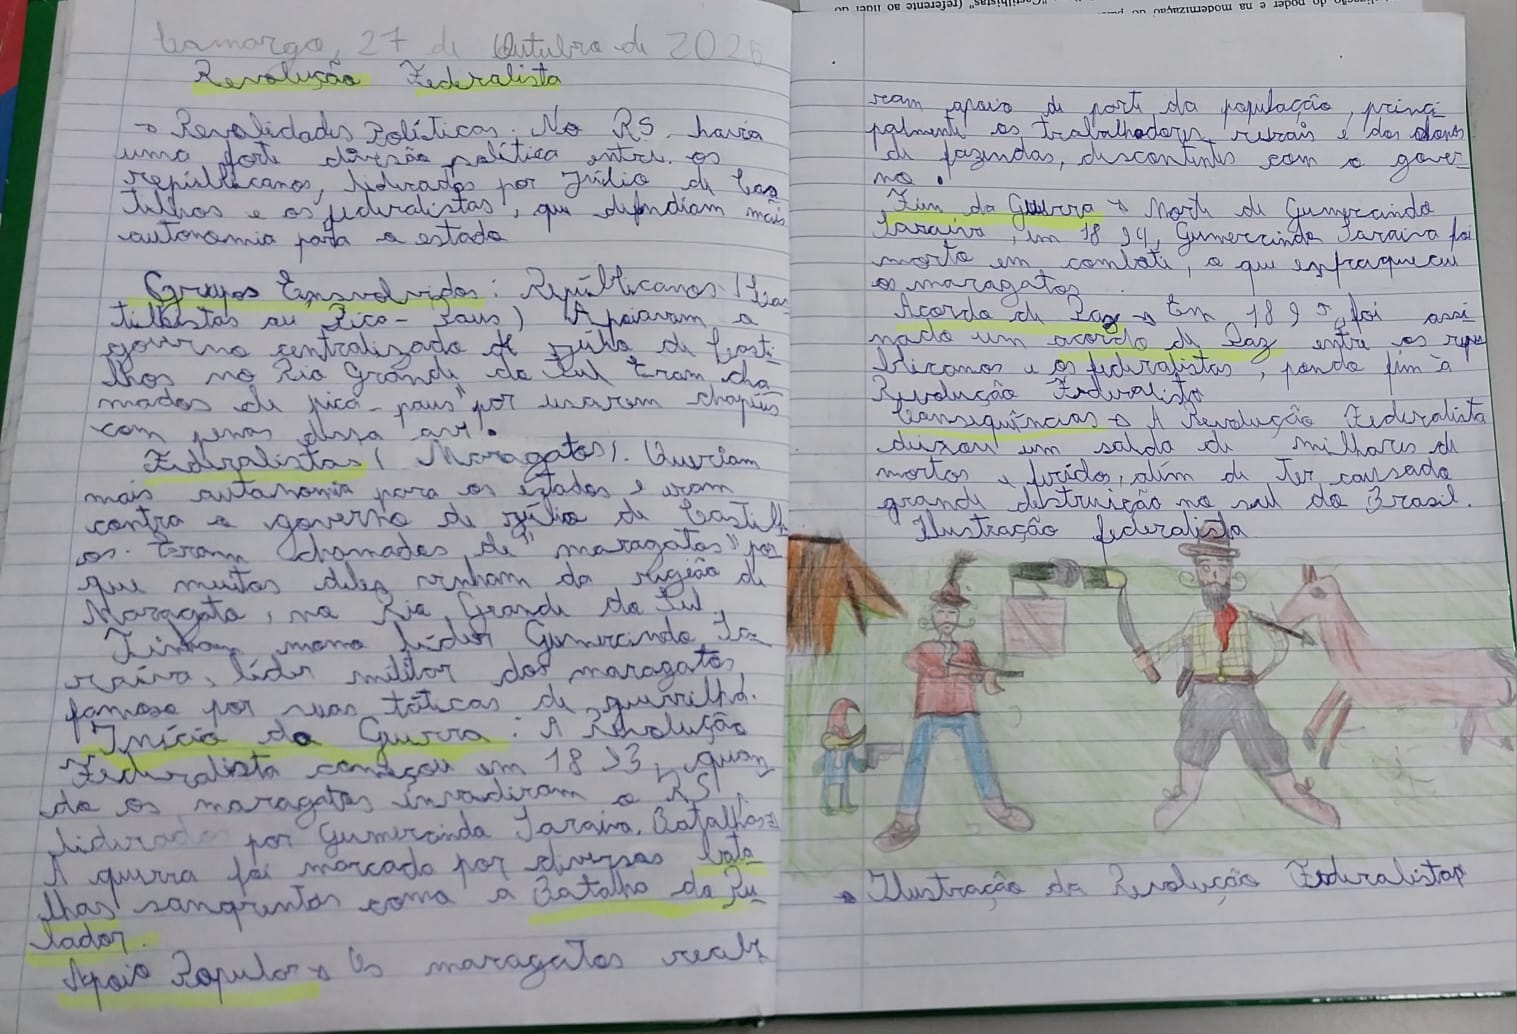 Camargo, 27 de Outubro de 2025
Revolução Federalista
→ Revalidades Políticas: No RS. havia
uma forte divisão política entre os
republicanos, liderados por Júlio de Cas
tilhos e os federalistas, que defendiam mais
autonomia para o estado
Grupos Envolvidos: Republicanos (Cas-
tilhistas ou Pica-Paus) Apoiavam o
governo centralizado de Júlio de Casti-
lhos no Rio Grande do Sul Eram cha
mados de pica-paus" por usarem chapéus
com penas dessa ave.
Federalistas (Maragatos). Queriam
mais autonomia para os estados e eram
contra o governo de Júlio de Castilh
os. Eram chamados de "maragatos" por
que muitos deles vinham da região de
Maragata, no Rio Grande do Sul.
Tinham como líder Gumercindo Sa-
raiva, líder militar dos maragatos
famoso por suas táticas de guerrilha.
Início da Guerra: A Revolução
Federalista começou em 1893, quan
do os maragatos invadiram o RS,
liderados por Gumercindo Saraiva. Batalhas:
A guerra foi marcada por diversas bata
lhas sangrentas como a Batalha do Pu
lador.
Apoio Popular → Os maragatos receb
ram apoio de parte da população, princi
palmente os trabalhadores rurais e dos donos
de fazendas, descontentes com o gover-
no.
Fim da Guerra → Morte de Gumercindo
Saraiva, em 1894, Gumercindo Saraiva foi
morto em combate, o que enfraqueceu
os maragatos.
Acordo de Paz → Em 1895, foi assi
nado um acordo de Paz entre os repu
blicanos e os federalistas, pondo fim à
Revolução Federalista
Consequências → A Revolução Federalista
deixou um saldo de milhares de
mortos e feridos, além de ter causado
grande destruição no sul do Brasil.
Ilustração federalista
→ Ilustração da Revolução Federalista